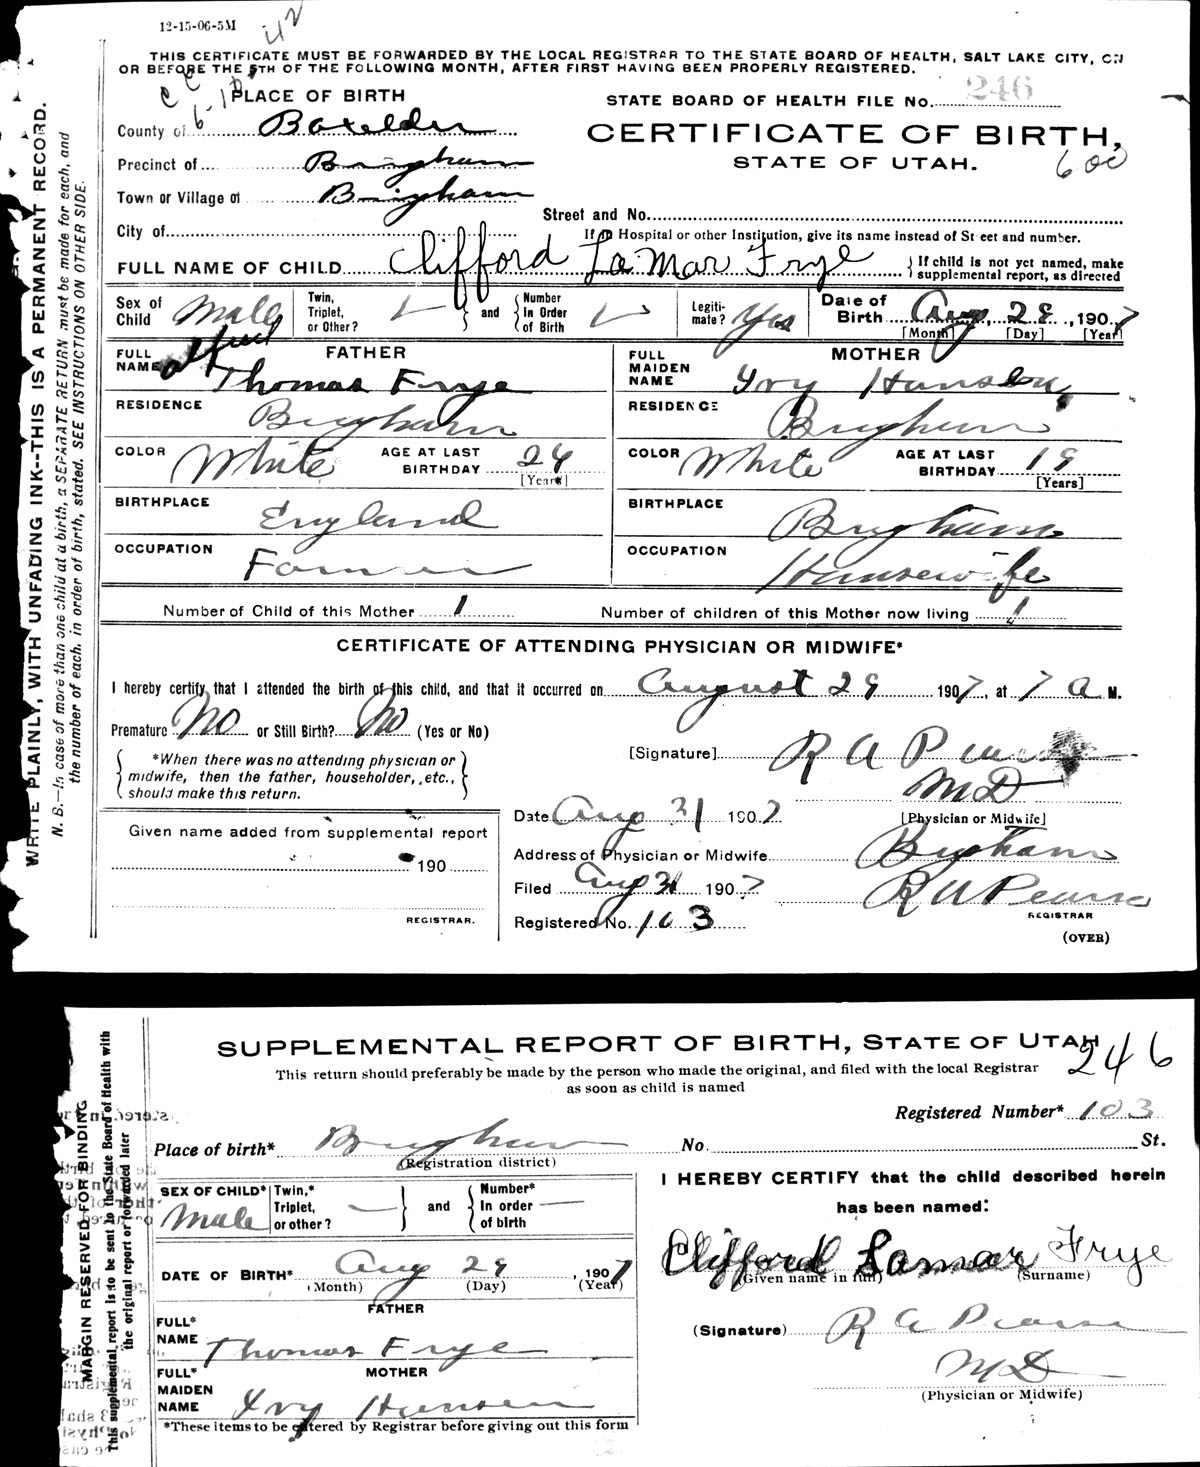 12-15-06-5M
42
THIS CERTIFICATE MUST BE FORWARDED BY THE LOCAL REGISTRAR TO THE STATE BOARD OF HEALTH, SALT LAKE CITY, ON
OR BEFORE THE 5TH OF THE FOLLOWING MONTH, AFTER FIRST HAVING BEEN PROPERLY REGISTERED.
PLACE OF BIRTH
STATE BOARD OF HEALTH FILE No. 246
County of Boxelder
CERTIFICATE OF BIRTH,
Precinct of Brigham
STATE OF UTAH.
600
Town or Village of Brigham
Street and No.
City of
If in Hospital or other Institution, give its name instead of Street and number.
FULL NAME OF CHILD Clifford LaMar Frye
If child is not yet named, make supplemental report, as directed
Sex of Child Male
Twin, Triplet, or Other?
and
Number In Order of Birth
Legitimate? Yes
Date of Birth Aug. 29, 1907
[Month] [Day] [Year]
FATHER
FULL NAME Alfred Thomas Frye
MOTHER
FULL MAIDEN NAME Ivy Hansen
RESIDENCE Brigham
RESIDENCE Brigham
COLOR White
AGE AT LAST BIRTHDAY 24 [Years]
COLOR White
AGE AT LAST BIRTHDAY 19 [Years]
BIRTHPLACE England
BIRTHPLACE Brigham
OCCUPATION Farmer
OCCUPATION Housewife
Number of Child of this Mother 1
Number of children of this Mother now living 1
CERTIFICATE OF ATTENDING PHYSICIAN OR MIDWIFE*
I hereby certify that I attended the birth of this child, and that it occurred on August 29 1907, at 7 A M.
Premature No or Still Birth? No (Yes or No)
*When there was no attending physician or midwife, then the father, householder, etc., should make this return.
[Signature] R A Pearse
MD
[Physician or Midwife]
Date Aug 31 1907
Given name added from supplemental report
190
REGISTRAR.
Address of Physician or Midwife Brigham
Filed Aug 31 1907 R A Pearse
REGISTRAR
Registered No. 103
(OVER)
WRITE PLAINLY, WITH UNFADING INK--THIS IS A PERMANENT RECORD.
N. B.—In case of more than one child at a birth, a SEPARATE RETURN must be made for each, and
the number of each, in order of birth, stated. SEE INSTRUCTIONS ON OTHER SIDE.
SUPPLEMENTAL REPORT OF BIRTH, STATE OF UTAH
246
This return should preferably be made by the person who made the original, and filed with the local Registrar
as soon as child is named
Registered Number* 103
Place of birth* Brigham No. St.
(Registration district)
SEX OF CHILD* Male
Twin,* Triplet, or other?
and
Number* In order of birth
I HEREBY CERTIFY that the child described herein
has been named:
DATE OF BIRTH* Aug 29, 1907
(Month) (Day) (Year)
Clifford Lamar Frye
(Given name in full) (Surname)
FATHER
FULL* NAME Thomas Frye
(Signature) R A Pearse
MD
(Physician or Midwife)
MOTHER
FULL* MAIDEN NAME Ivy Hansen
*These items to be entered by Registrar before giving out this form
MARGIN RESERVED FOR BINDING
This supplemental report is to be sent to the State Board of Health with
the original report or forwarded later